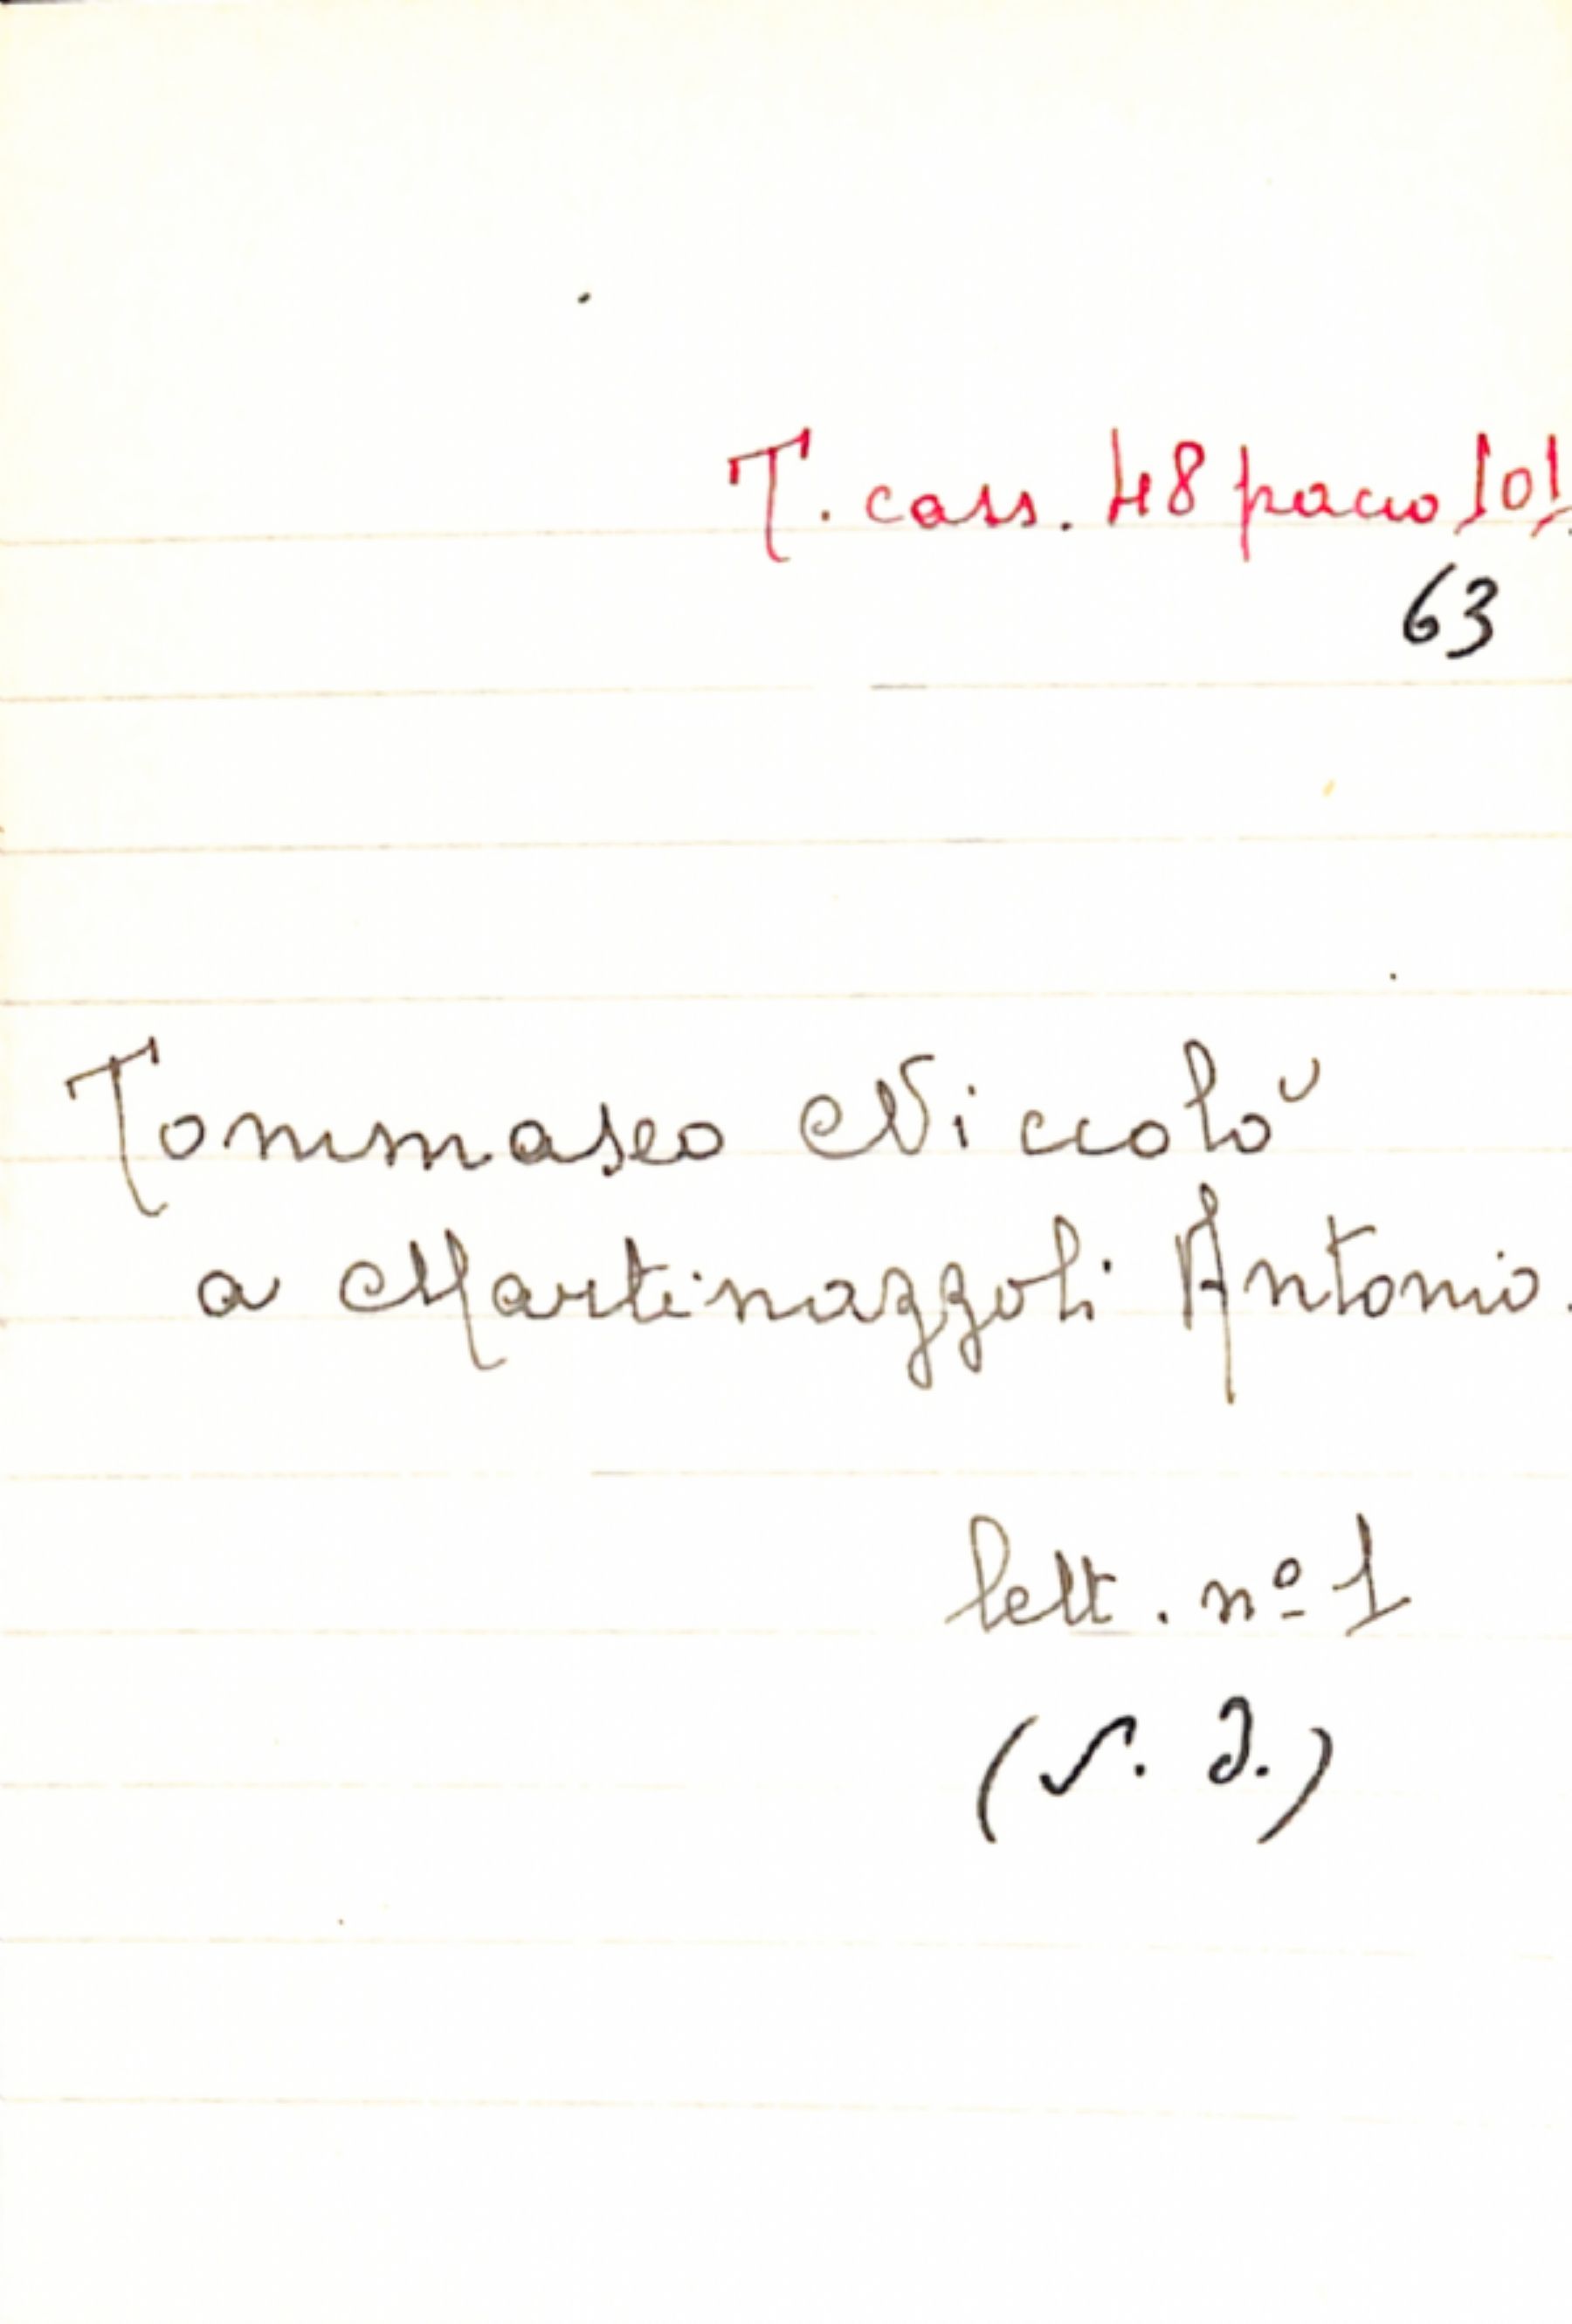 T. cass. 48 pacco 101.
63
Tommaseo Niccolò
a Martinazzoli Antonio.
lett. nº 1
(s. d.)